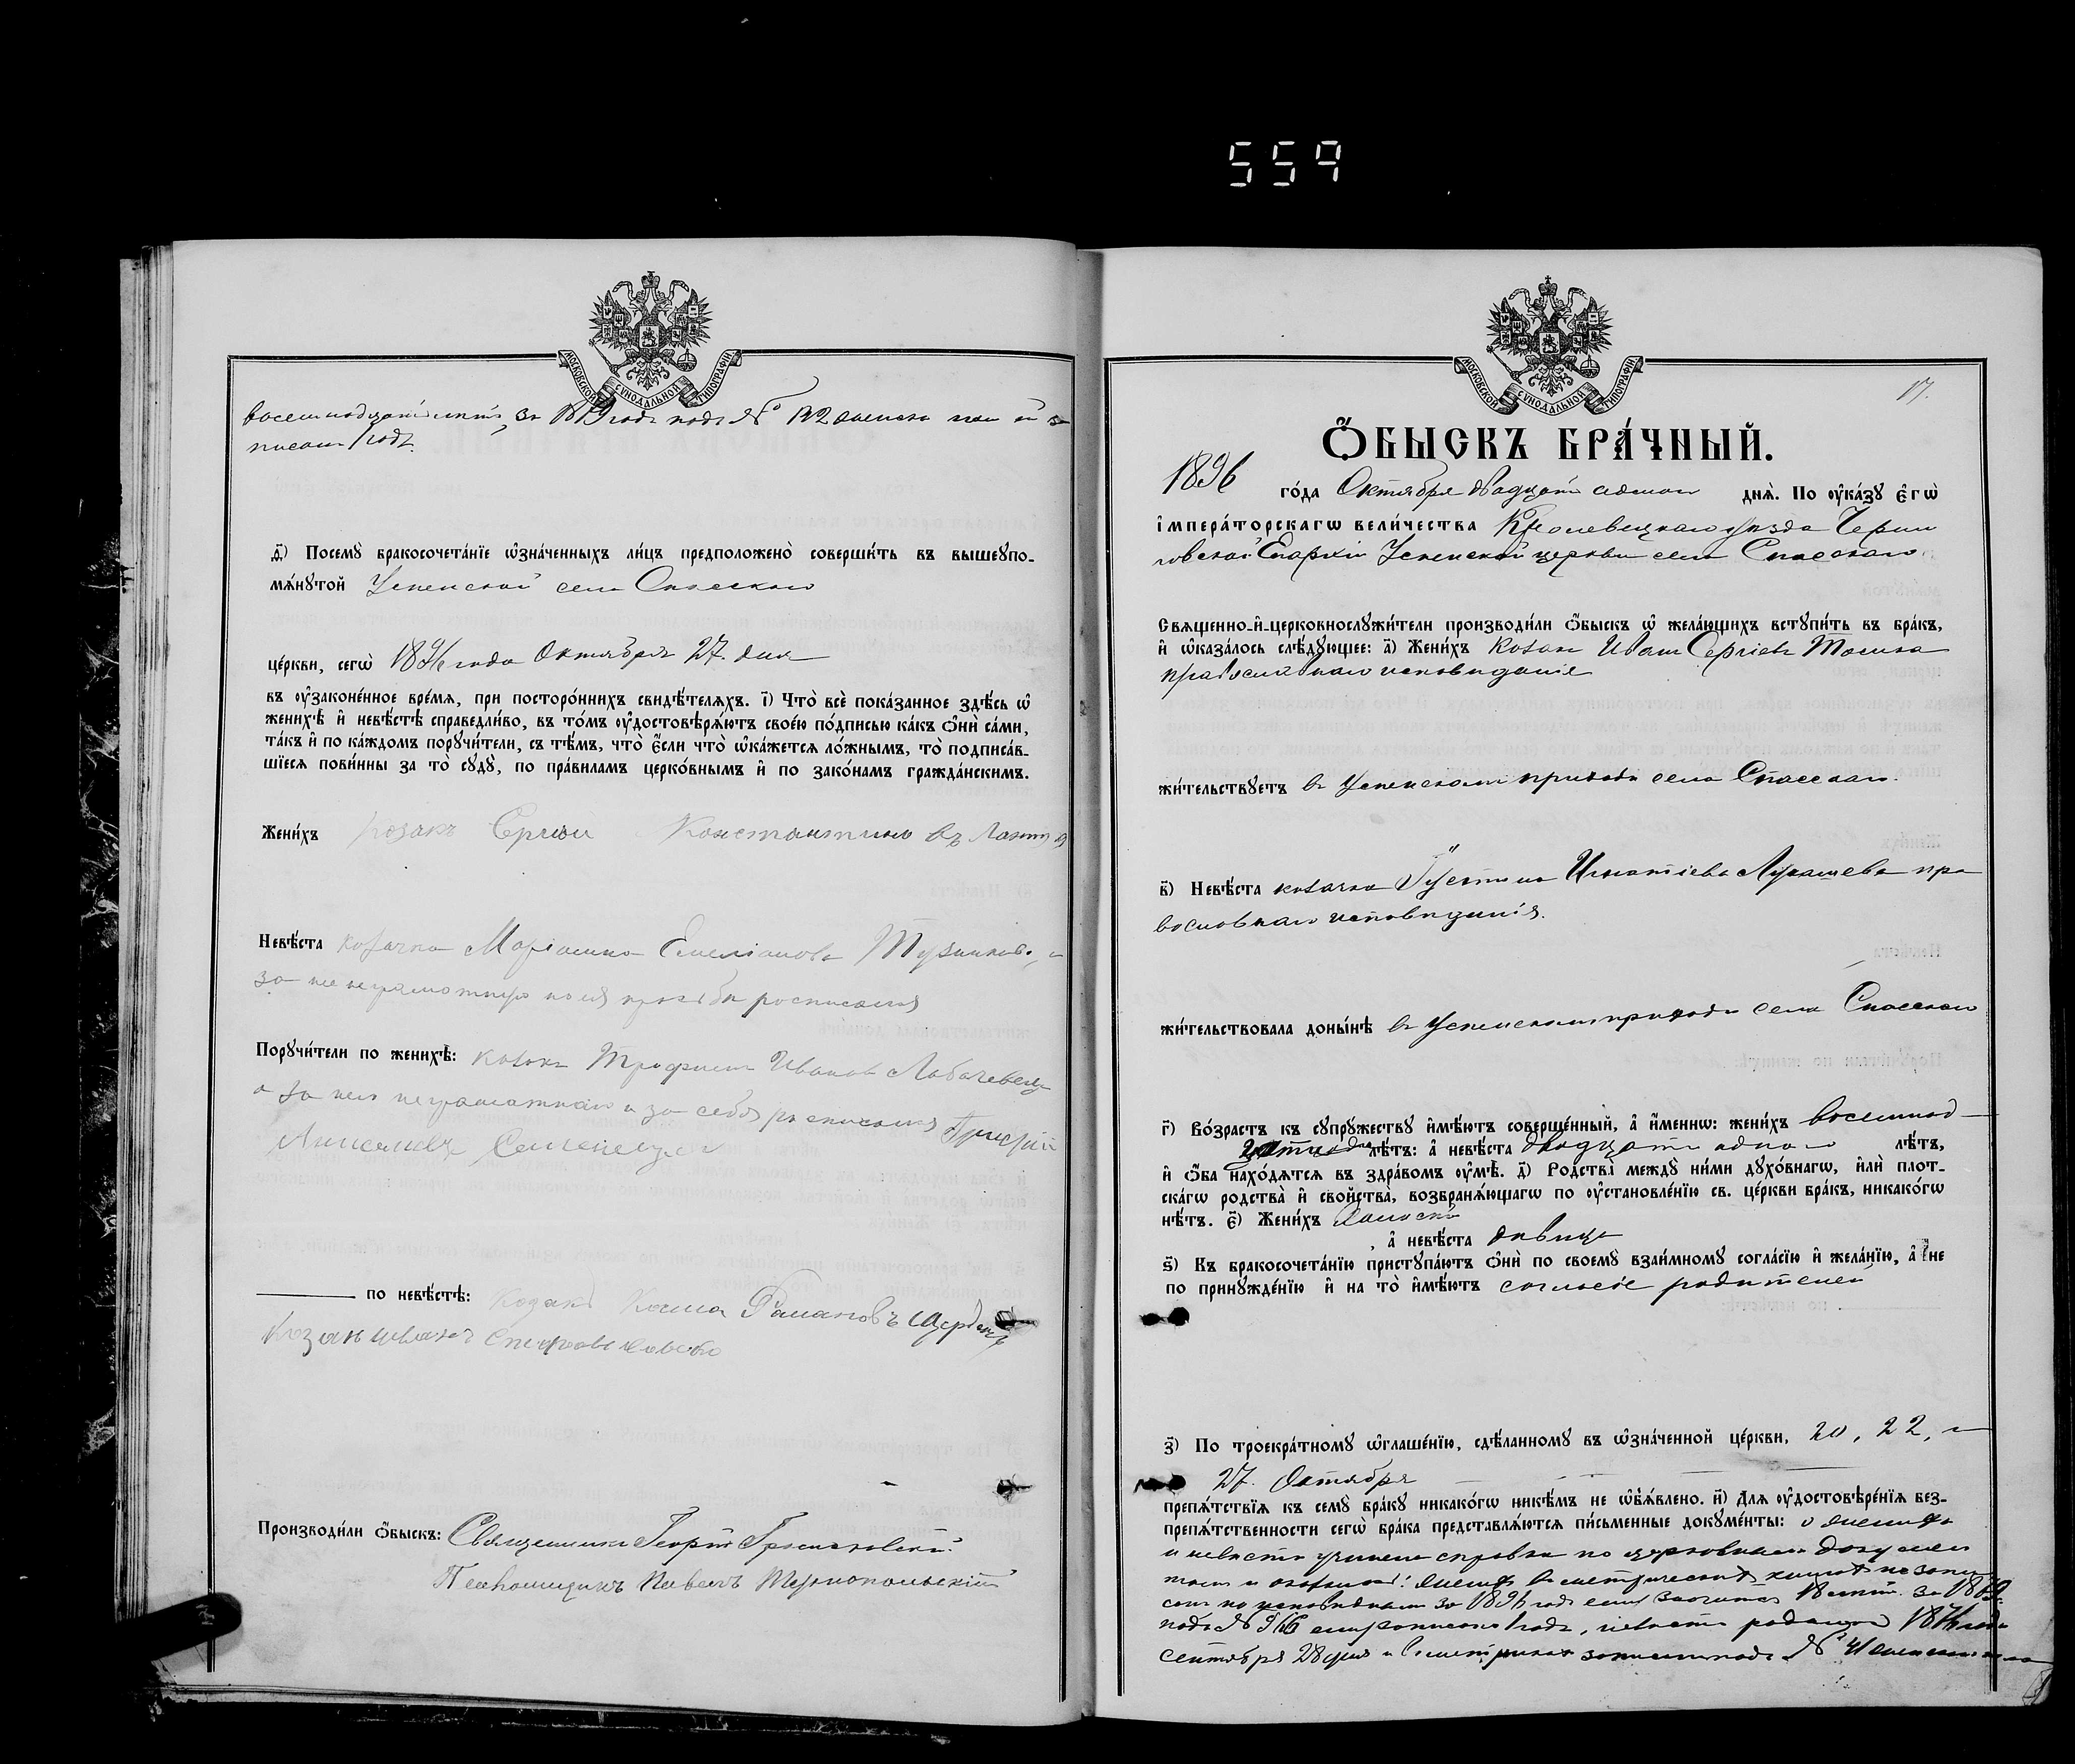 559
МОСКОВСКОЙ СУНОДАЛЬНОЙ ТИПОГРАФІИ
за 1879 годъ подъ № 122
писанъ 1 годъ.
д҃) Посемꙋ̀ бракосочета́нїе ѡ҆зна́ченныхъ ли́цъ предположено̀ соверши́ть въ вышеꙋпо-
мѧ́нꙋтой Успенской села Спасскаго
це́ркви, сегѡ̀ 1896 года Октября 27. дня
въ ᲂу҆зако́ненное вре́мѧ, при посторо́ннихъ свидѣ́телѧхъ. і҃) Что̀ всѐ пока́занное здѣ́сь ѡ҆
женихѣ̀ и҆ невѣ́стѣ справедли́во, въ то́мъ ᲂу҆достовѣрѧ́ютъ свое́ю по́дписью ка́къ ѻ҆нѝ са́ми,
та́къ и҆ по ка́ждомъ порꙋчи́тели, съ тѣ́мъ, что̀ є҆́сли что̀ ѡ҆ка́жется ло́жнымъ, то̀ подписа́в-
шїеся пови́нны за то̀ сꙋдꙋ̀, по пра́виламъ церко́внымъ и҆ по зако́намъ гражда́нскимъ.
Жени́хъ Козакъ Сергій Константиновъ
Невѣ́ста козачка Маріанна Емеліанова
за нее неграмотную по ея прозьбѣ росписался
Порꙋчи́тели по женихѣ̀: козакъ Трофимъ Ивановъ
а за него неграмотнаго и за себя росписался Григорій
по невѣ́стѣ: Козакъ Косма Рамановъ
Козакъ Иванъ
Производи́ли ѻ҆́быскъ: Священникъ Георгій
Псаломщикъ Павелъ Тернопольскій
МОСКОВСКОЙ СУНОДАЛЬНОЙ ТИПОГРАФІИ
17.
Ѻ҆́БЫСКЪ БРА́ЧНЫЙ.
1896 го́да Октября двадцать седьмаго днѧ̀. По ᲂу҆ка́зꙋ є҆гѡ̀
і҆мпера́торскагѡ вели́чества Кролевецкаго уѣзда Черни
говской Епархіи Успенской церкви села Спасскаго
Свѧщенно-и҆-церковнослꙋжи́тели производи́ли ѻ҆́быскъ ѡ҆ жела́ющихъ встꙋпи́ть въ бра́къ,
и҆ ѡ҆каза́лось слѣ́дꙋющее: а҃) Жени́хъ козакъ Иванъ Сергіевъ
православнаго исповѣданія
жи́тельствꙋетъ въ Успенскомъ приходѣ села Спасскаго.
в҃) Невѣ́ста козачка Іустина Игнатіева Лукашева пра
вославнаго исповѣданія.
жи́тельствовала доны́нѣ въ Успенскомъ приходѣ села Спасскаго
г҃) Во́зрастъ къ сꙋпрꙋ́жествꙋ и҆мѣ́ютъ соверше́нный, а҆ и҆́меннѡ: жени́хъ восемнад
цати лѣ́тъ: а҆ невѣ́ста двадцати одного лѣ́тъ,
и҆ ѻ҆́ба нахо́дѧтся въ здра́вомъ ᲂу҆мѣ̀. д҃) Родства̀ междꙋ̀ ни́ми дꙋхо́внагѡ, и҆лѝ плот-
ска́гѡ родства̀ и҆ свойства̀, возбранѧ́ющагѡ по ᲂу҆становле́нїю св. це́ркви бра́къ, никако́гѡ
нѣ́тъ. є҃) Жени́хъ холостъ
, а҆ невѣ́ста дѣвица
ѕ҃) Къ бракосочета́нїю пристꙋпа́ютъ ѻ҆нѝ по своемꙋ̀ взаи́мномꙋ согла́сїю и҆ жела́нїю, а҆ не
по принꙋжде́нїю и҆ на то̀ и҆мѣ́ютъ согласіе родителей
з҃) По троекра́тномꙋ ѡ҆глаше́нїю, сдѣ́ланномꙋ въ ѡ҆зна́ченной це́ркви, 20, 22, и
27. Октября
препѧ́тствїѧ къ семꙋ̀ бра́кꙋ никако́гѡ никѣ́мъ не ѡ҆б̾ѧ́влено. и҃) Длѧ ᲂу҆достовѣре́нїѧ без-
препѧ́тственности сегѡ̀ бра́ка представлѧ́ются пи́сьменные докꙋме́нты: о женихѣ
и невѣстѣ учинена справка по церковнымъ докумен
тамъ и оказалось: женихъ въ метрическихъ книгахъ не запи
санъ по исповѣднымъ за 1896 годъ ему значится 18 лѣтъ за 1879
подъ № 966 ему записано 1 годъ, невѣста родилась года
сентября 28 дня и въ метрикахъ записана подъ № 41